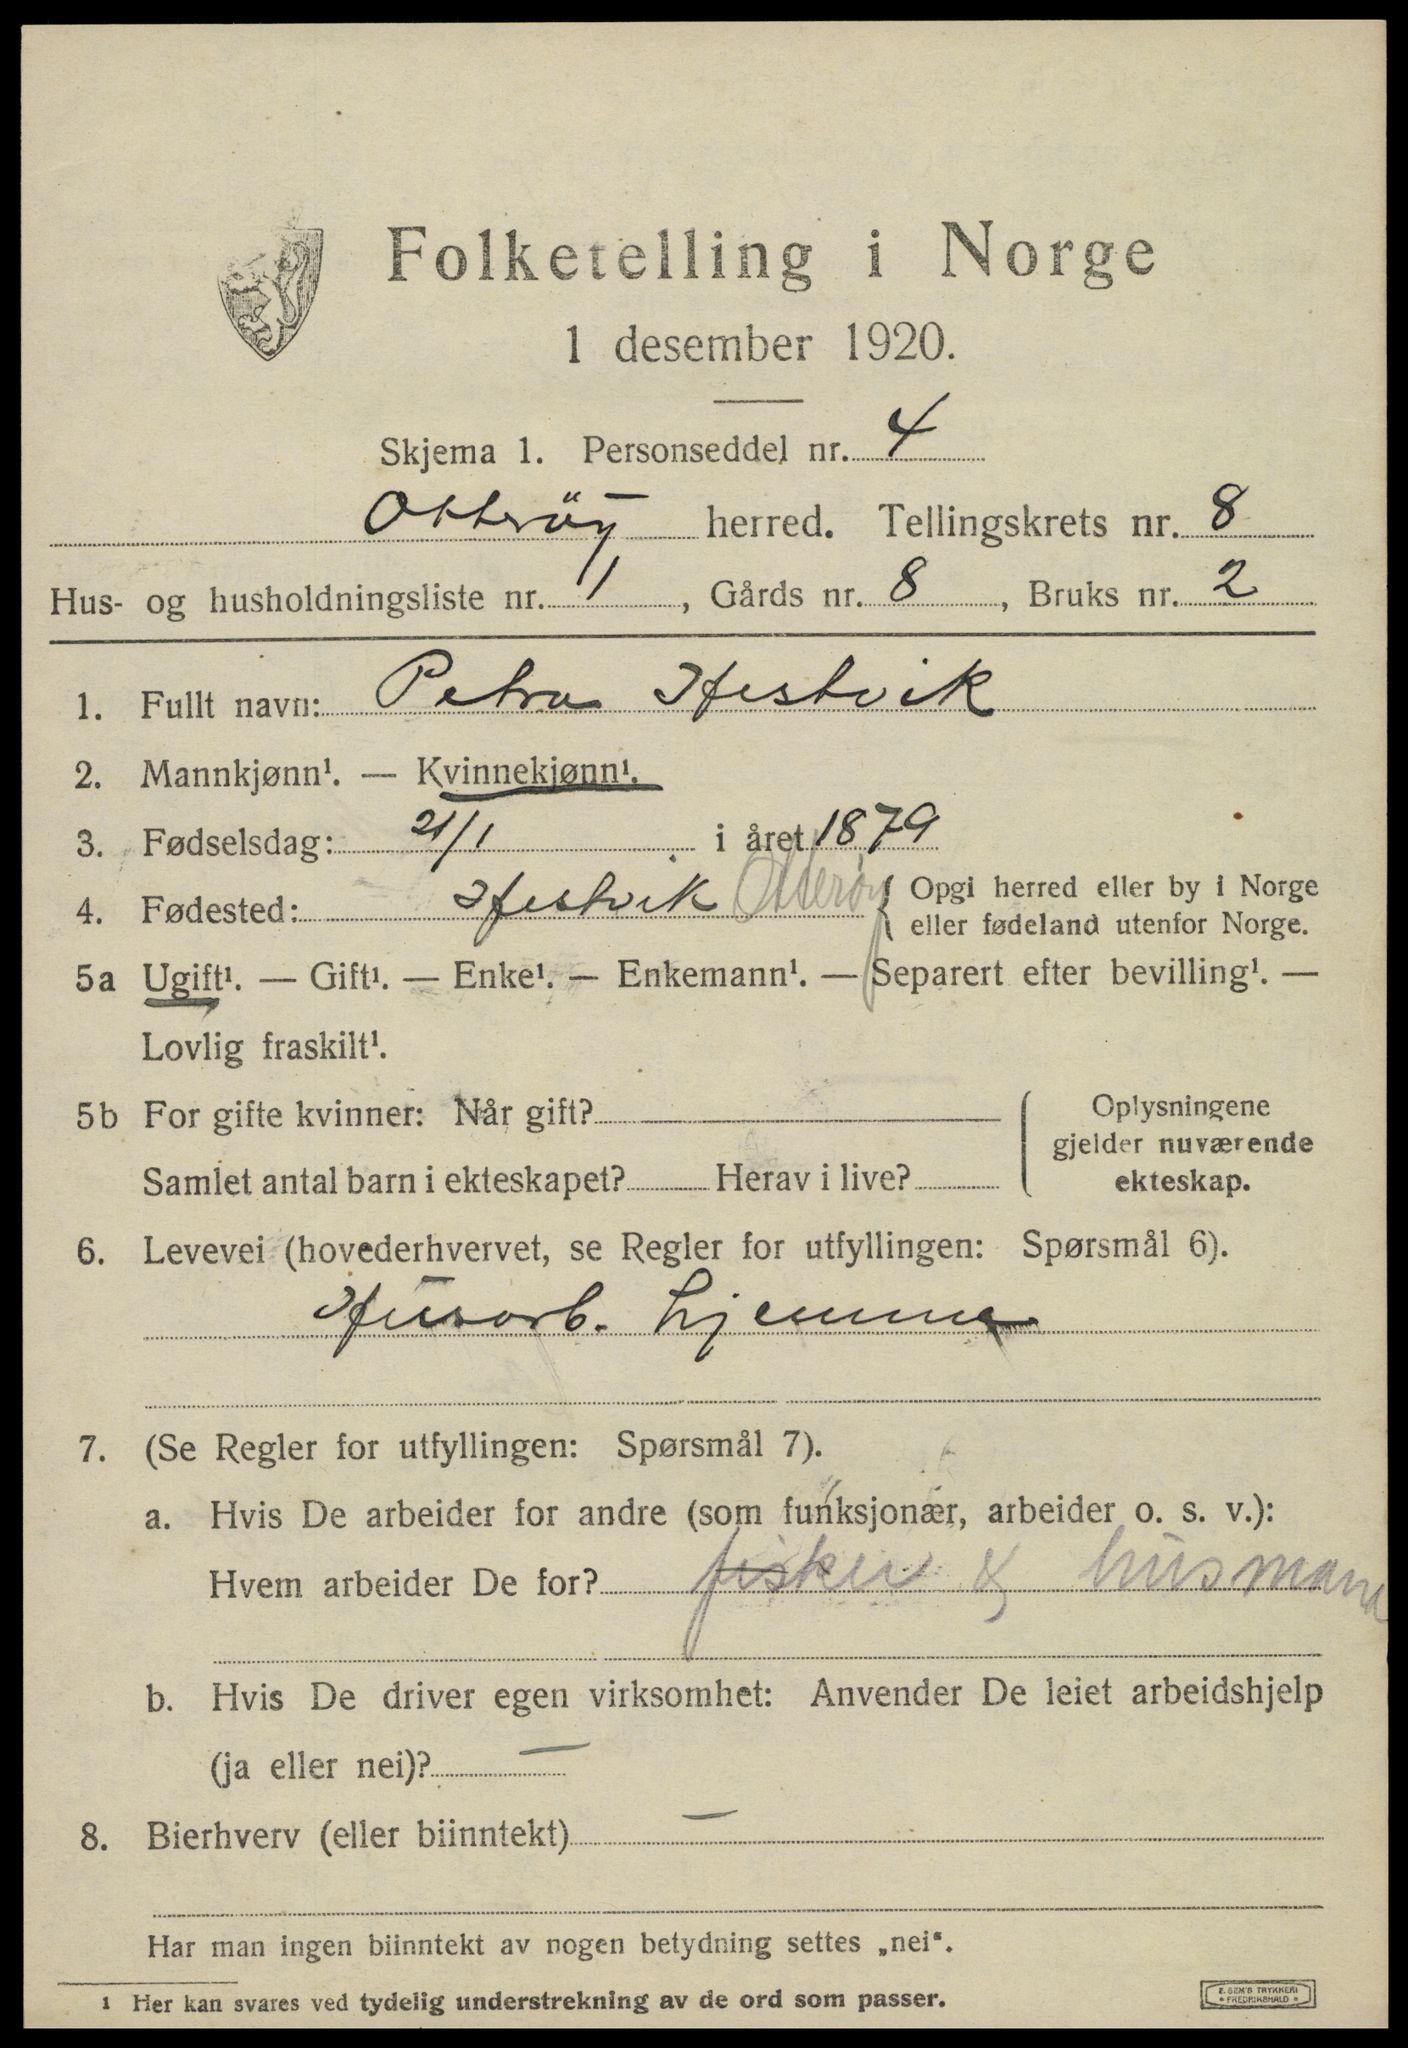 Folketelling i Norge
1 desember 1920.
Skjema 1. Personseddel nr. 4
Otterøy herred. Tellingskrets nr. 8
Hus- og husholdningsliste nr. 1, Gårds nr. 8, Bruks nr. 2
1. Fullt navn: Petra Hestvik
2. Mannkjønn¹. — Kvinnekjønn¹.
3. Fødselsdag: 21/1 i året 1879
4. Fødested: Hestvik Otterøy { Opgi herred eller by i Norge
eller fødeland utenfor Norge.
5a Ugift¹. — Gift¹. — Enke¹. — Enkemann¹. — Separert efter bevilling¹. —
Lovlig fraskilt¹.
5b For gifte kvinner: Når gift?
Samlet antal barn i ekteskapet? Herav i live?
{ Oplysningene
gjelder nuværende
ekteskap.
6. Levevei (hovederhvervet, se Regler for utfyllingen: Spørsmål 6).
Husarb. hjemme
7. (Se Regler for utfyllingen: Spørsmål 7).
a. Hvis De arbeider for andre (som funksjonær, arbeider o. s. v.):
Hvem arbeider De for? fisker & husmand
b. Hvis De driver egen virksomhet: Anvender De leiet arbeidshjelp
(ja eller nei)? —
8. Bierhverv (eller biinntekt) —
Har man ingen biinntekt av nogen betydning settes „nei“.
1 Her kan svares ved tydelig understrekning av de ord som passer.
E. SEM'S TRYKKERI
• FREDRIKSHALD •